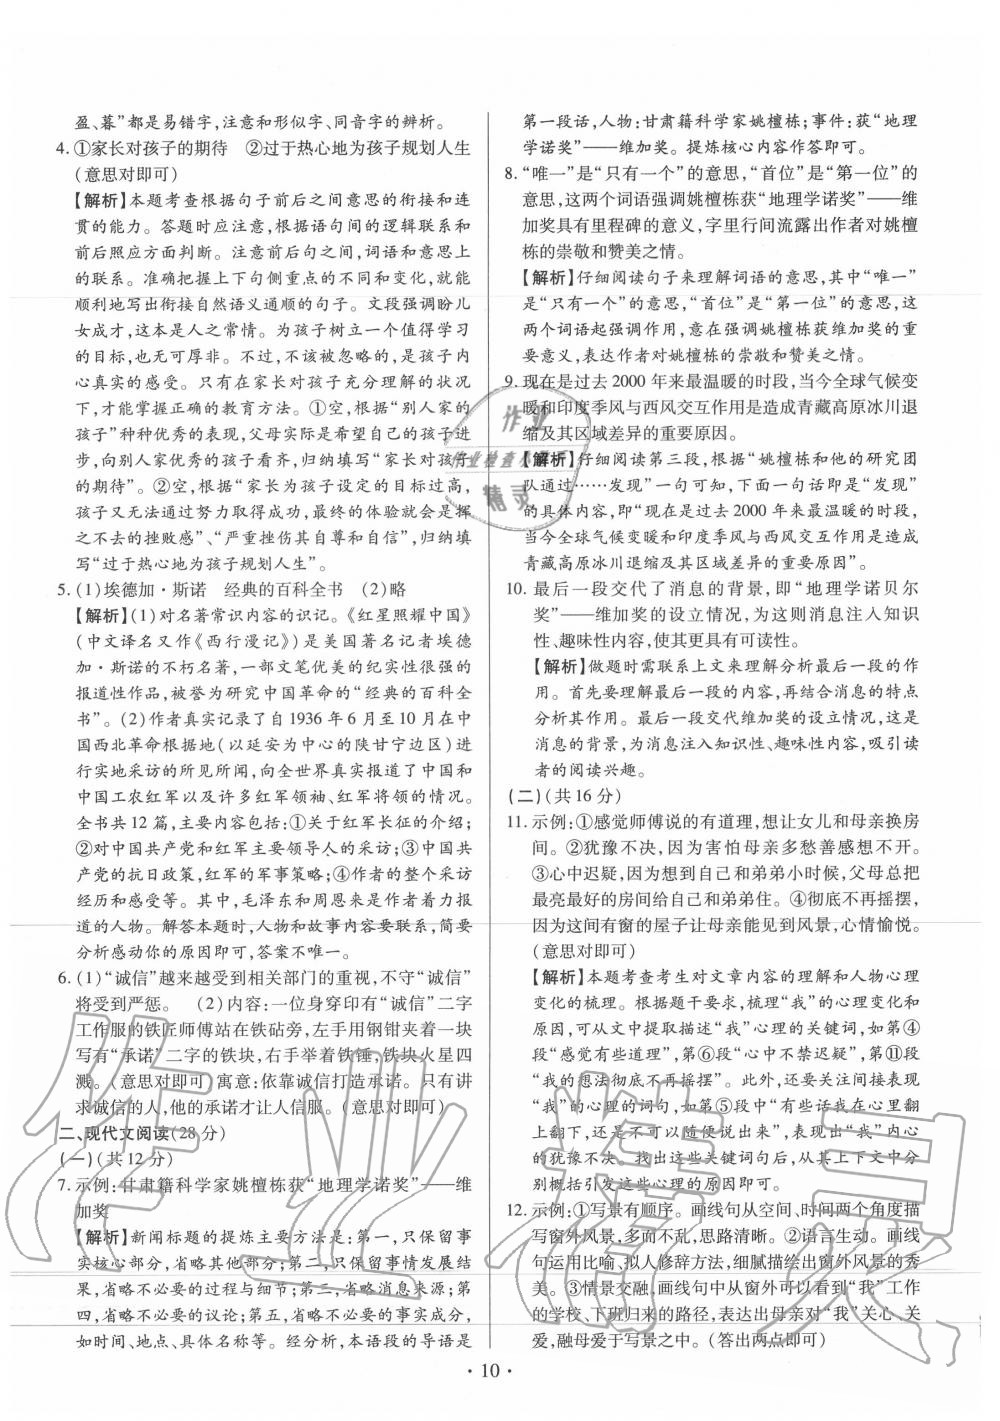 盈、暮”都是易错字,注意和形似字、同音字的辨析。
4. ①家长对孩子的期待　②过于热心地为孩子规划人生
(意思对即可)
【解析】本题考查根据句子前后之间意思的衔接和连
贯的能力。答题时应注意,根据语句间的逻辑联系和
前后照应方面判断。注意前后句之间,词语和意思上
的联系。准确把握上下句侧重点的不同和变化,就能
顺利地写出衔接自然语义通顺的句子。文段强调盼儿
女成才,这本是人之常情。为孩子树立一个值得学习
的目标,也无可厚非。不过,不该被忽略的,是孩子内
心真实的感受。只有在家长对孩子充分理解的状况
下,才能掌握正确的教育方法。①空,根据“别人家的
孩子”种种优秀的表现,父母实际是希望自己的孩子进
步,向别人家优秀的孩子看齐,归纳填写“家长对孩子
的期待”。②空,根据“家长为孩子设定的目标过高,
孩子又无法通过努力取得成功,最终的体验就会是挥
之不去的挫败感”、“严重挫伤其自尊和自信”,归纳填
写“过于热心地为孩子规划人生”。
5. (1)埃德加·斯诺　经典的百科全书　(2)略
【解析】(1)对名著常识内容的识记。《红星照耀中国》
(中文译名又作《西行漫记》)是美国著名记者埃德
加·斯诺的不朽名著,一部文笔优美的纪实性很强的
报道性作品,被誉为研究中国革命的“经典的百科全
书”。(2)作者真实记录了自1936年6月至10月在中
国西北革命根据地(以延安为中心的陕甘宁边区)进
行实地采访的所见所闻,向全世界真实报道了中国和
中国工农红军以及许多红军领袖、红军将领的情况。
全书共12篇,主要内容包括:①关于红军长征的介绍;
②对中国共产党和红军主要领导人的采访;③中国共
产党的抗日政策,红军的军事策略;④作者的整个采访
经历和感受等。其中,毛泽东和周恩来是作者着力报
道的人物。解答本题时,人物和故事内容要联系,简要
分析感动你的原因即可,答案不唯一。
6. (1)“诚信”越来越受到相关部门的重视,不守“诚信”
将受到严惩。　(2)内容:一位身穿印有“诚信”二字
工作服的铁匠师傅站在铁砧旁,左手用钢钳夹着一块
写有“承诺”二字的铁块,右手举着铁锤,铁块火星四
溅。(意思对即可)寓意:依靠诚信打造承诺。只有讲
求诚信的人,他的承诺才让人信服。(意思对即可)
二、现代文阅读(28分)
(一)(共12分)
7. 示例:甘肃籍科学家姚檀栋获“地理学诺奖”——维
加奖
【解析】新闻标题的提炼主要方法是:第一,只保留事
实核心部分,省略其他内容;第二,只保留事情发展结
果,省略不必要的过程与细节;第三,省略消息来源;第
四,省略不必要的议论;第五,省略不必要的事实成分,
如时间、地点、具体名称等。经分析,本语段的导语是
第一段话,人物:甘肃籍科学家姚檀栋;事件:获“地理
学诺奖”——维加奖。提炼核心内容作答即可。
8. “唯一”是“只有一个”的意思,“首位”是“第一位”的
意思,这两个词语强调姚檀栋获“地理学诺奖”——维
加奖具有里程碑的意义,字里行间流露出作者对姚檀
栋的崇敬和赞美之情。
【解析】仔细阅读句子来理解词语的意思,其中“唯一”
是“只有一个”的意思,“首位”是“第一位”的意思,这
两个词语起强调作用,意在强调姚檀栋获维加奖的重
要意义,表达作者对姚檀栋的崇敬和赞美之情。
9. 现在是过去2000年来最温暖的时段,当今全球气候变
暖和印度季风与西风交互作用是造成青藏高原冰川退
缩及其区域差异的重要原因。
【解析】仔细阅读第三段,根据“姚檀栋和他的研究团
队通过……发现”一句可知,下面一句话即是“发现”
的具体内容,即“现在是过去2000年来最温暖的时段,
当今全球气候变暖和印度季风与西风交互作用是造成
青藏高原冰川退缩及其区域差异的重要原因”。
10. 最后一段交代了消息的背景,即“地理学诺贝尔
奖”——维加奖的设立情况,为这则消息注入知识
性、趣味性内容,使其更具有可读性。
【解析】做题时需联系上文来理解分析最后一段的作
用。首先要理解最后一段的内容,再结合消息的特点
分析其作用。最后一段交代维加奖的设立情况,这是
消息的背景,为消息注入知识性、趣味性内容,吸引读
者的阅读兴趣。
(二)(共16分)
11. 示例:①感觉师傅说的有道理,想让女儿和母亲换房
间。②犹豫不决,因为害怕母亲多愁善感想不开。
③心中迟疑,想到自己和弟弟小时候,父母总是把
最亮最好的房间给自己和弟弟住。④彻底不再摇摆,
因为这间有窗的屋子让母亲能见到风景,心情愉悦。
(意思对即可)
【解析】本题考查考生对文章内容的理解和人物心理
变化的梳理。根据题干要求,梳理“我”的心理变化和
原因,可从文中提取描写“我”心理的关键词,如第④
段“感觉有些道理”,第⑥段“心中不禁迟疑”,第⑪段
“我的想法彻底不再摇摆”。此外,还要关注间接表现
“我”的心理的词句,如第⑤段中“有些话我在心里翻
上翻下,还是不可以随便说出来”,表现出“我”内心
的犹豫不决。找出这些关键词句后,从其上下文中分
别概括引发这些心理的原因即可。
12. 示例:①写景有顺序。画线句从空间、时间两个角度描
写窗外风景,多而不乱,思路清晰。②语言生动。画线
句运用比喻、拟人修辞方法,细腻描绘出窗外风景的秀
美。③情景交融,画线句中从窗外可以看到“我”工作
的学校、下班归来的路径,表达出母亲对“我”关心、关
爱,融母爱于写景之中。(答出两点即可)
· 10 ·
作业
作业检查小
精灵
作业精灵